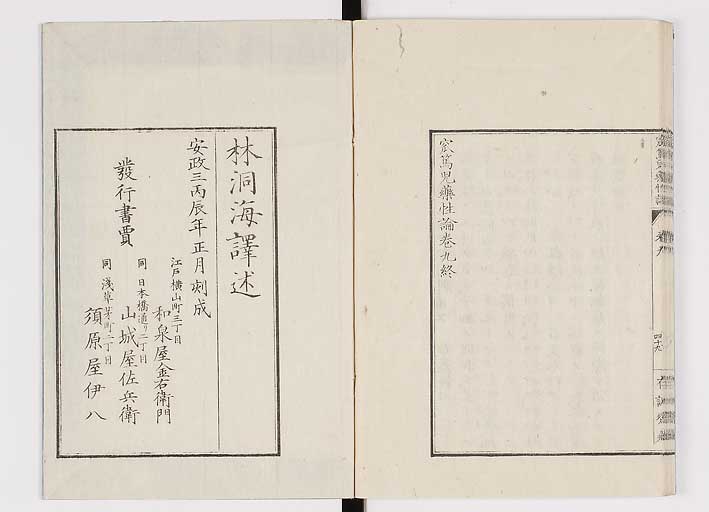 窊篤児藥性論卷九終
卷九
四十九
林洞海譯述
安政三丙辰年正月刻成
發行書賈
江戸横山町三丁目
和泉屋金右衛門
同 日本橋通リ二丁目
山城屋佐兵衛
同 淺草茅町二丁目
須原屋伊八